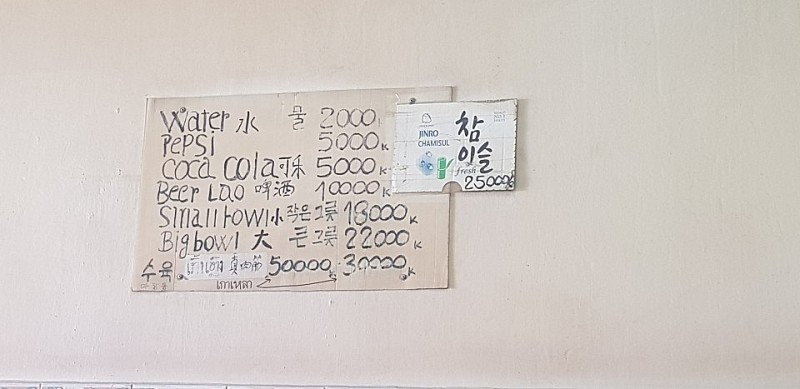 Water 水 물 2000K
PEPSI 5000K
coca cola 可乐 5000K
Beer Lao 啤酒 10000K
Small bowl 小 작은 그릇 18000K
Big bowl 大 큰 그릇 22000K
수육 50000K 30000K
JINRO
CHAMISUL
참
이슬
fresh
25000K